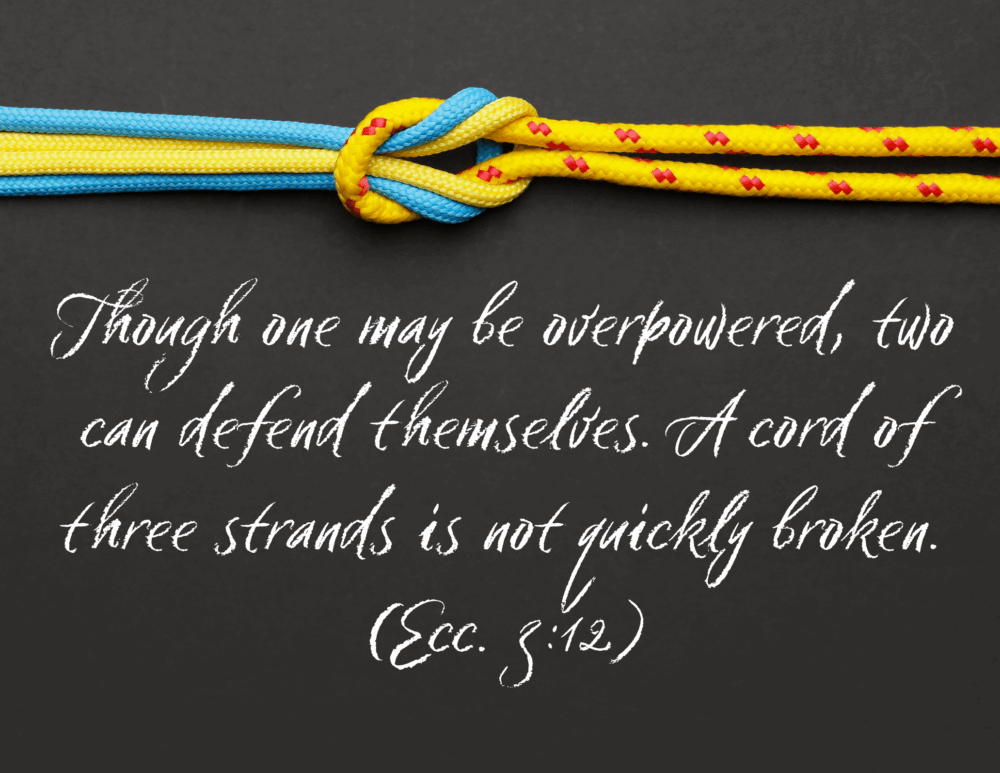 Though one may be overpowered, two
can defend themselves. A cord of
three strands is not quickly broken.
(Ecc. 3:12)